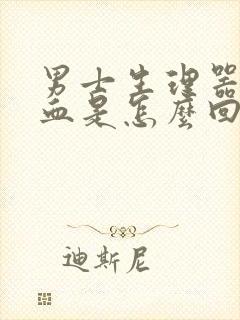 男士生理器
血是怎麼回
迪斯尼